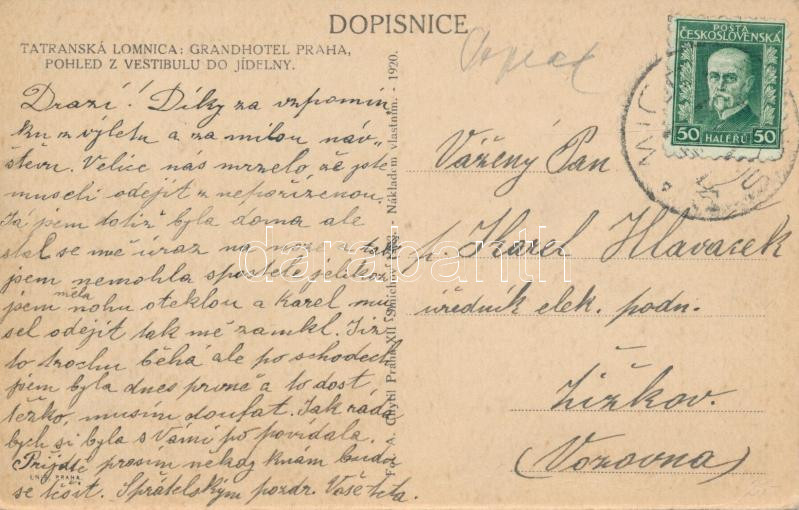 DOPISNICE
TATRANSKÁ LOMNICA: GRANDHOTEL PRAHA,
POHLED Z VESTIBULU DO JÍDELNY.
Drazí! Díky za vzpomín,
ku z výletu a za milou náv„
štěvu. Velice nás mrzelo, že jste
museli odejít z nepořízenou,
Já jsem totiž byla doma ale
stal se mě úraz na noze a tak
jsem nemohla spostele jelikož
jsem měla nohu oteklou a Karel mu
sel odejít tak mě zamkl. Již
to trochu běhá ale po schodech
jsem byla dnes prvně a to dost
těžko, musím doufat. Jak ráda
bych si byla s Vámi po povídala.
Přijďte prosím někdy knám budu
se těšit. Spřátelským pozdr. Vaše teta.
LN. PRAHA
F. A. Chytil Praha XII - Nákladem vlastním. - 1920.
POŠTA
ČESKOSLOVENSKÁ
50 HALÉŘŮ 50
Vážený Pan
p. Karel Hlavacek
úředník elek. podn.
Žižkov.
(Vozovna)
darabanth